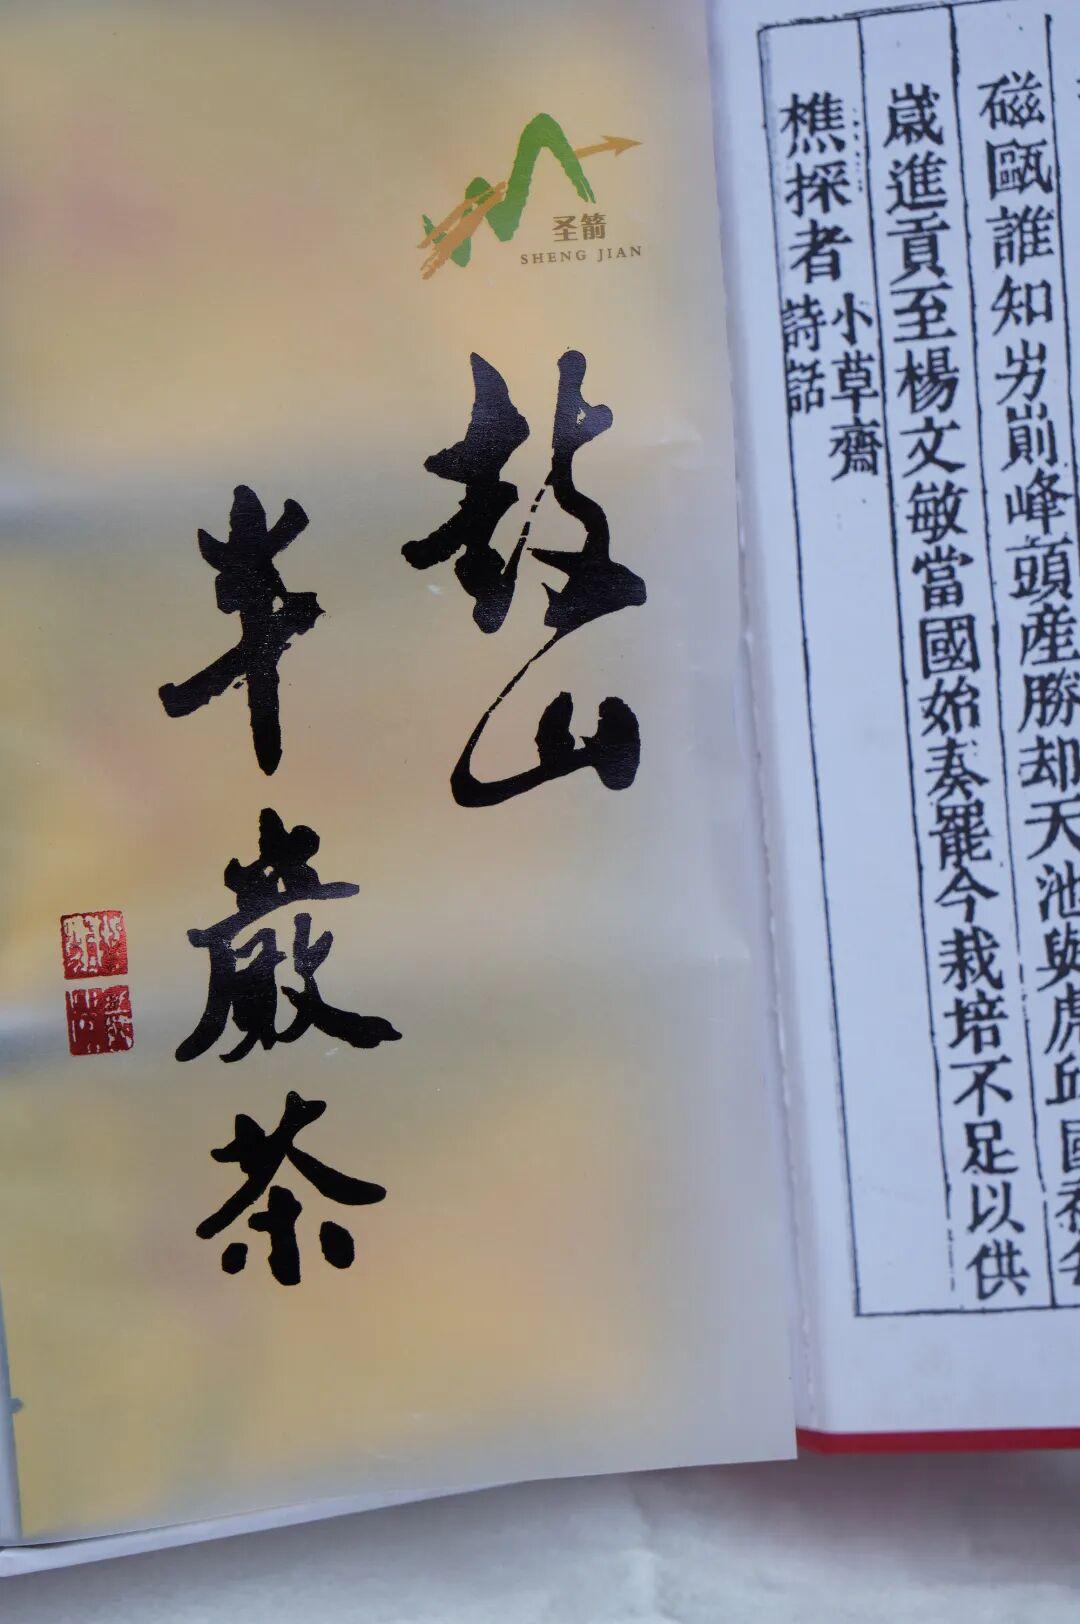 圣箭
SHENG JIAN
鼓山
半巖茶
磁甌誰知屴崱峰頭產勝却天池與虎邱國荈每
歲進貢至楊文敏當國始奏罷今栽培不足以供
樵採者小草齋
詩話